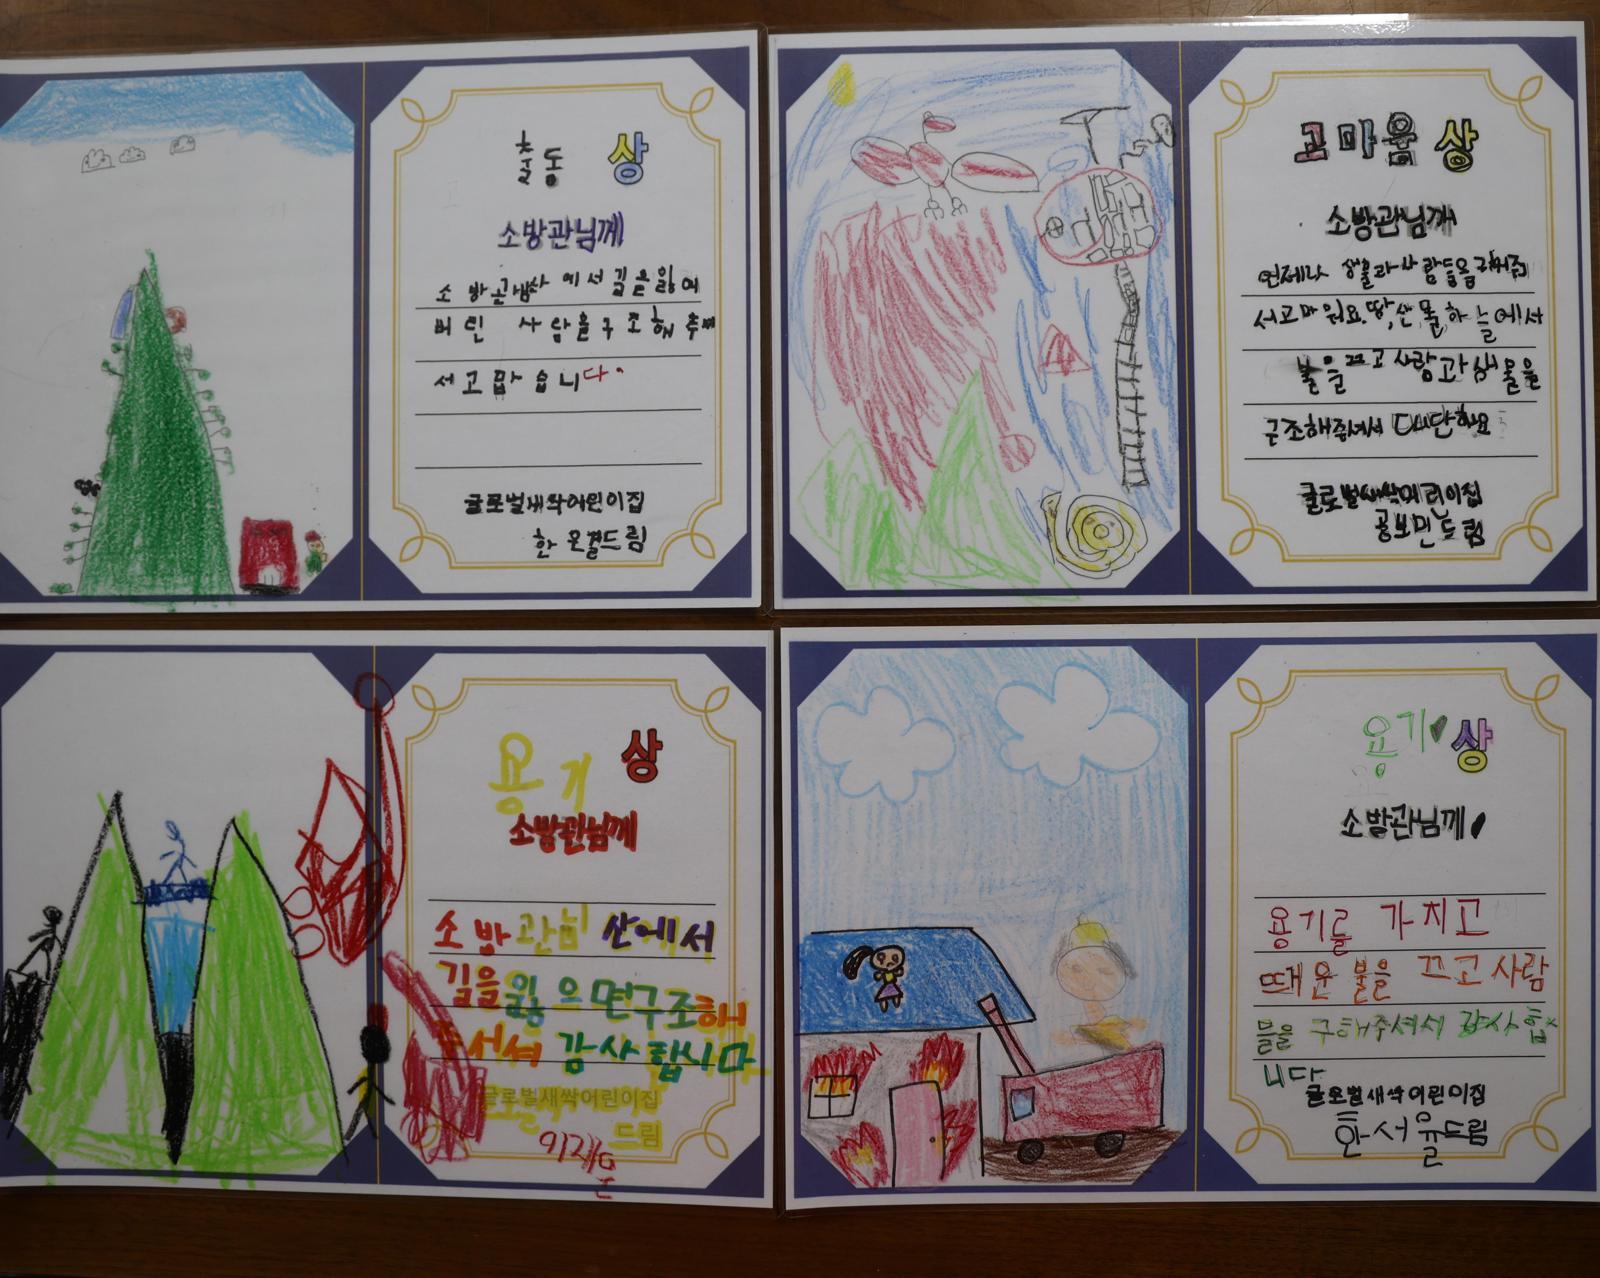 출동 상
소방관님께
소방관님산에서길을잃어
버린 사람을구조해주셔
서고맙습니다.
글로벌새싹어린이집
한온결드림
고마움 상
소방관님께
언제나 생물과사람들을
서고마워요.땅,산물하늘에서
불을끄고사람과생물을
구조해주셔서 대단해요
글로벌새싹어린이집
공보민드림
용기 상
소방관님께
소방관님 산에서
길을잃으면구조해
주셔서 감사합니다
글로벌새싹어린이집
드림
용기 상
소방관님께
용기를 가지고
뜨거운 불을 끄고 사람
들을 구해주셔서 감사합
니다
글로벌새싹어린이집
한서율드림